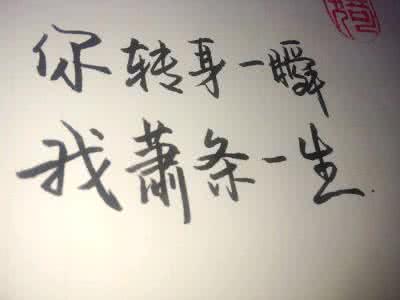 你转身一瞬
我萧条一生